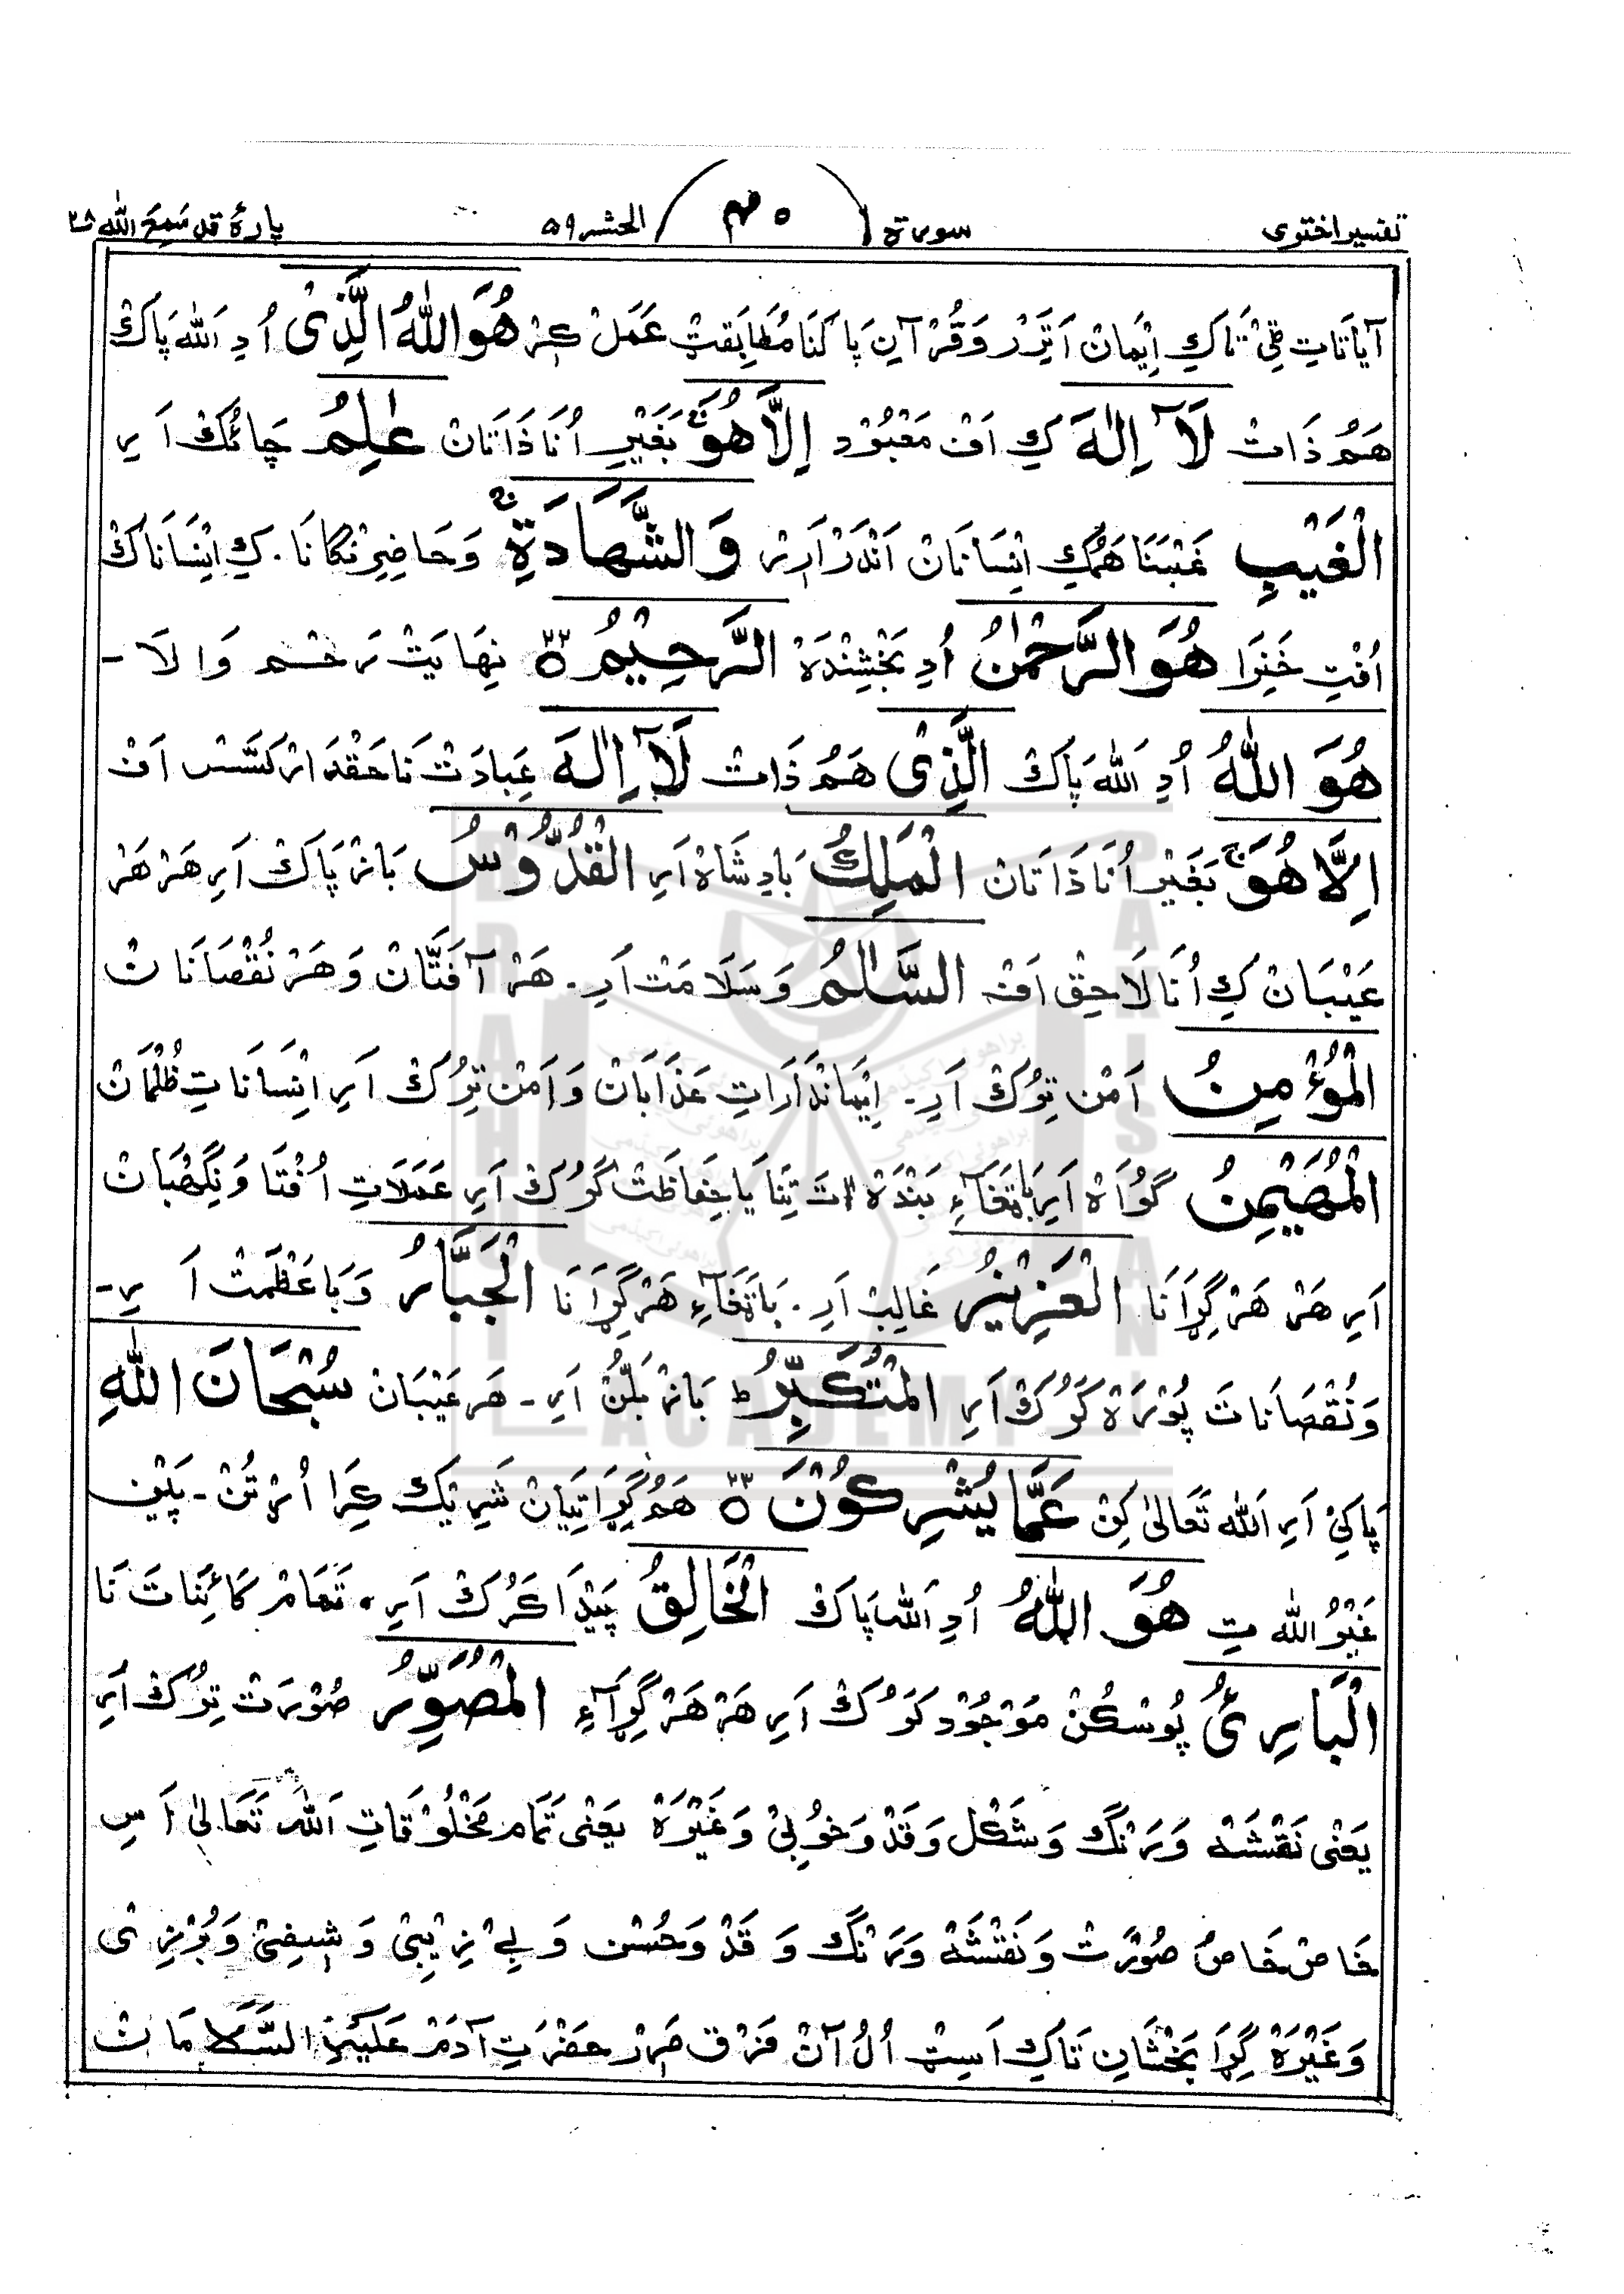 تفسیر اختری سورة ۴۵۰ الحشر ۵۹ پارۀ قد سَمِعَ اللّٰه ۲۸
آیاتَاتِ تَاکِ اِیْمَانْ اَتِّرْر وَقُرْآنِ پَاکَنَا مُطَابِقَتْ عَمَلْ کِرْ هُوَاللّٰهُ الَّذِیْ اُدِ اَللّٰه پَاکْ
هَمُ ذَاتْ لَآ اِلٰهَ کِ اَفْ مَعْبُوْد اِلَّا هُوَ بَغَیْرِ اُنَا ذَاتَانْ عٰلِمُ چَائُکْ اَرِ
الْغَیْبِ غَیْبَنَا هَمْکِ اِنْسَانَانْ اَنْدَرْ اَرِرْ وَالشَّهَادَةِ وَحَاضِرِنْکَانَا۔ کِ اِنْسَانَاکْ
اُفْتِ خَنِرَا هُوَ الرَّحْمٰنُ اُدِ بَخْشِنْدَهْ الرَّحِیْمُ ۲۲ نِهَایَتْ رَحْم وَالَا۔
هُوَ اللّٰهُ اُدِ اَللّٰه پَاکْ الَّذِیْ هَمُ ذَاتْ لَآ اِلٰهَ عِبَادَتْ نَا حَقْدَارْ کَسَّسْ اَفْ
اِلَّا هُوَ بَغَیْرْ اُنَا ذَاتَانْ الْمَلِکُ بَادِشَاهْ اَرِ الْقُدُّوْسُ بَازْ پَاکْ اَرِ هَرْ هَرْ
عَیْبَانْ کِ اُنَا لَاحِقْ اَفَْ السَّلٰمُ وَسَلَامَتْ اَرِ۔ هَرْ آفَتَّانْ وَهَرْ نُقْصَانَانْ
الْمُؤْمِنُ اَمْن تِرُکْ اَرِ۔ اِیْمَانْدَارَاتِ عَذَابَانْ وَاَمْن تِرُکْ اَرِ اِنْسَانَاتِ ظُلْمَانْ
الْمُهَیْمِنُ گُوَاهْ اَرِ بَاتَغَآءِ بَنْدَهْ اتَ تِنَا یَا حِفَاظَتْ کَرُکْ اَرِ عَمَلَاتِ اُفْتَا وَنِگَهْبَانْ
اَرِ هَرْ هَرْ گِڑَانَا الْعَزِیْزُ غَالِبْ اَرِ۔ بَاتَغَاءِ هَرْ گِڑَانَا الْجَبَّارُ وَبَا عَظْمَتْ اَرِ۔
وَنُقْصَانَاتَ پُوْرَهْ کَرُکْ اَرِ الْمُتَکَبِّرُ ط بَازْ بَلُّنْ اَرِ۔ هَر عَیْبَانْ سُبْحَانَ اللّٰهِ
پَاکِیْ اَرِ اَللّٰه تَعَالیٰ کِنْ عَمَّا یُشْرِکُوْنَ ۲۳ هَمُ گِڑَاتِیَانْ شَرِیْکْ کِرَا اُرْتُنْ۔ پَیْن
غَیْرُ اللّٰه تِ هُوَ اللّٰهُ اُدِ اَللّٰه پَاکْ الْخَالِقُ پَیْدَا کَرُکْ اَرِ۔ تَمَامْ کَائِنَاتَ نَا
الْبَارِئُ پُوسْکُنْ مَوْجُوْد کَرُکْ اَرِ هَرْ هَرْ گِڑَاءِ الْمُصَوِّرُ صُوْرَتْ تِرُکْ اَرِ
یَعْنٰی نَقْشَهْ وَرَنْگ وَشَکْل وَقَدْ وَخُوْبِیْ وَغَیْرَهْ یَعْنٰی تَمَام مَخْلُوْقَاتِ اَللّٰه تَعَالیٰ اَسِ
خَاصْ خَاصْ صُوْرَتْ وَنَقْشَهْ وَرَنْگ وَ قَدْ وَحُسْن وَ بِےْ زِیْبِیْ وَشِیفِیْ وَبُرْزِی
وَغَیْرَهْ گِڑَا بَخْشَانِ تَاکِ اَسِتْ اُلُ آنْ فَرْق مَرْ حَضْرَتِ آدَمْ عَلَیْهِ السَّلَامَانْ
BRAHUI ACADEMY PAKISTAN
براهوئی اکیڈمی